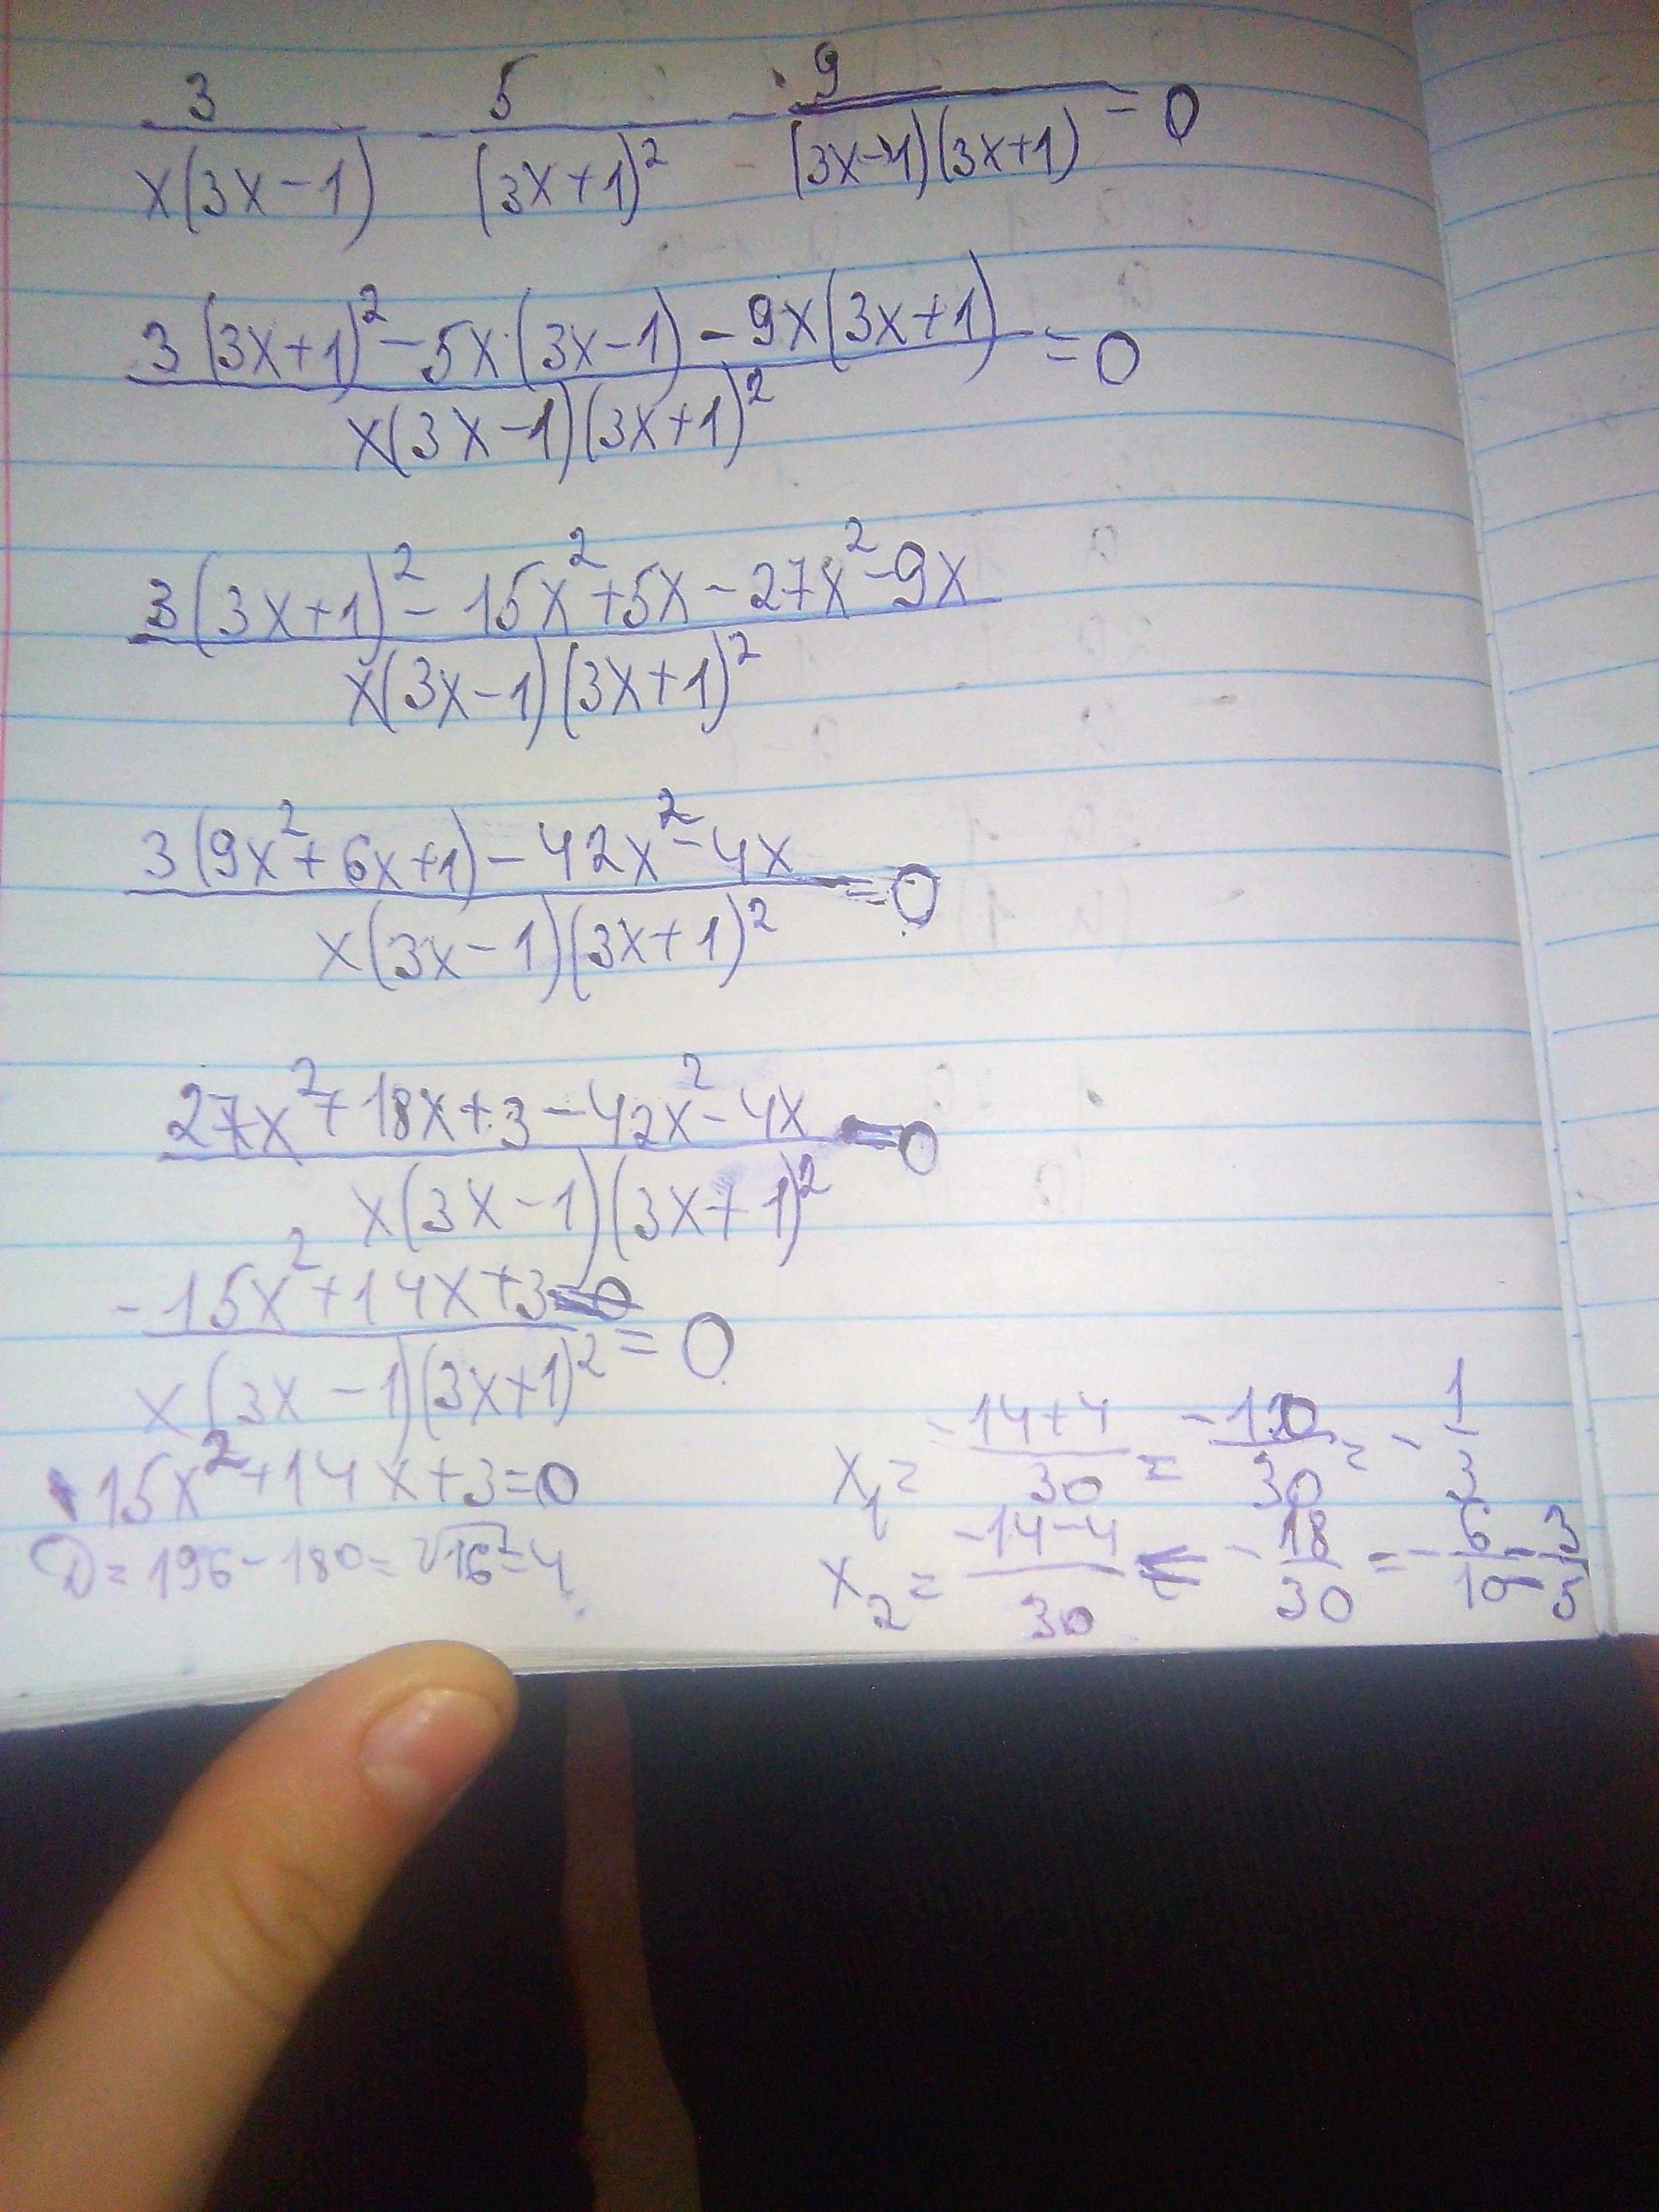 3/(x(3x-1)) - 5/(3x+1)² - 9/((3x-1)(3x+1)) = 0
(3(3x+1)² - 5x·(3x-1) - 9x(3x+1))/(x(3x-1)(3x+1)²) = 0
(3(3x+1)² - 15x² + 5x - 27x² - 9x)/(x(3x-1)(3x+1)²)
(3(9x² + 6x + 1) - 42x² - 4x)/(x(3x-1)(3x+1)²) = 0
(27x² + 18x + 3 - 42x² - 4x)/(x(3x-1)(3x+1)²) = 0
(-15x² + 14x + 3)/(x(3x-1)(3x+1)²) = 0
15x² + 14x + 3 = 0
D = 196 - 180 = √16² = 4
x₁ = (-14+4)/30 = -10/30 = -1/3
x₂ = (-14-4)/30 = -18/30 = -6/10 = 3/5